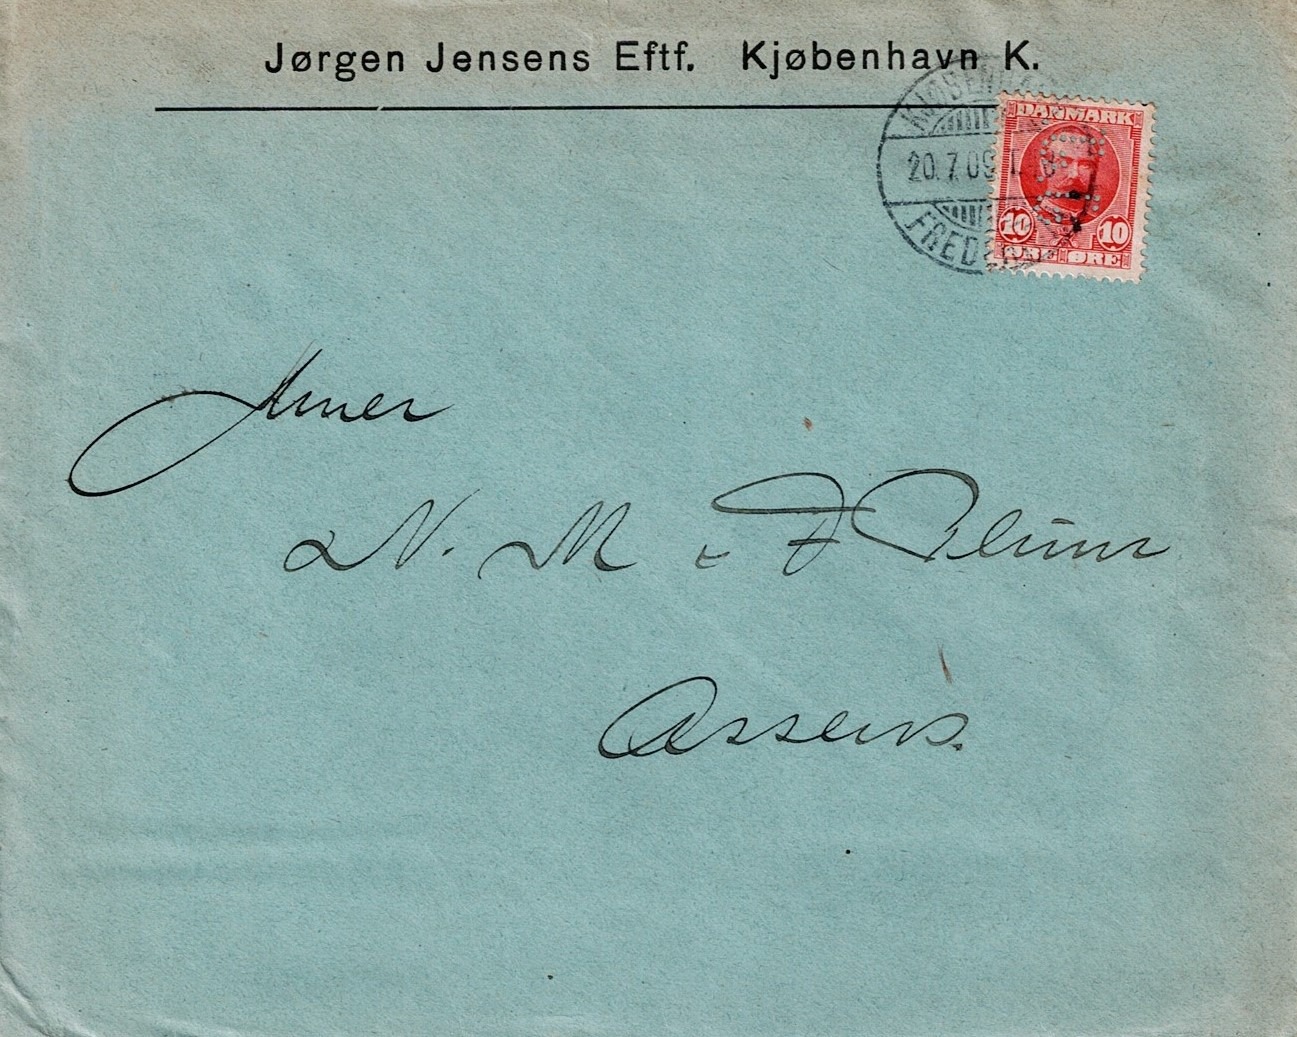 Jørgen Jensens Eftf. Kjøbenhavn K.
KJØBENHA
20.7.09
FRED
DANMARK
10 10
ØRE ØRE
N. M
Assens.